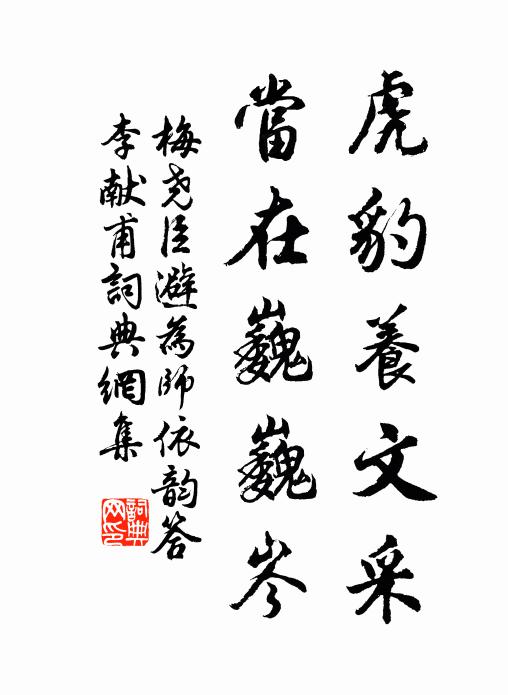 虎豹養文采
當在巍巍岑
梅尧臣避為師依韵答
李献甫詞典網集
詞典
网印